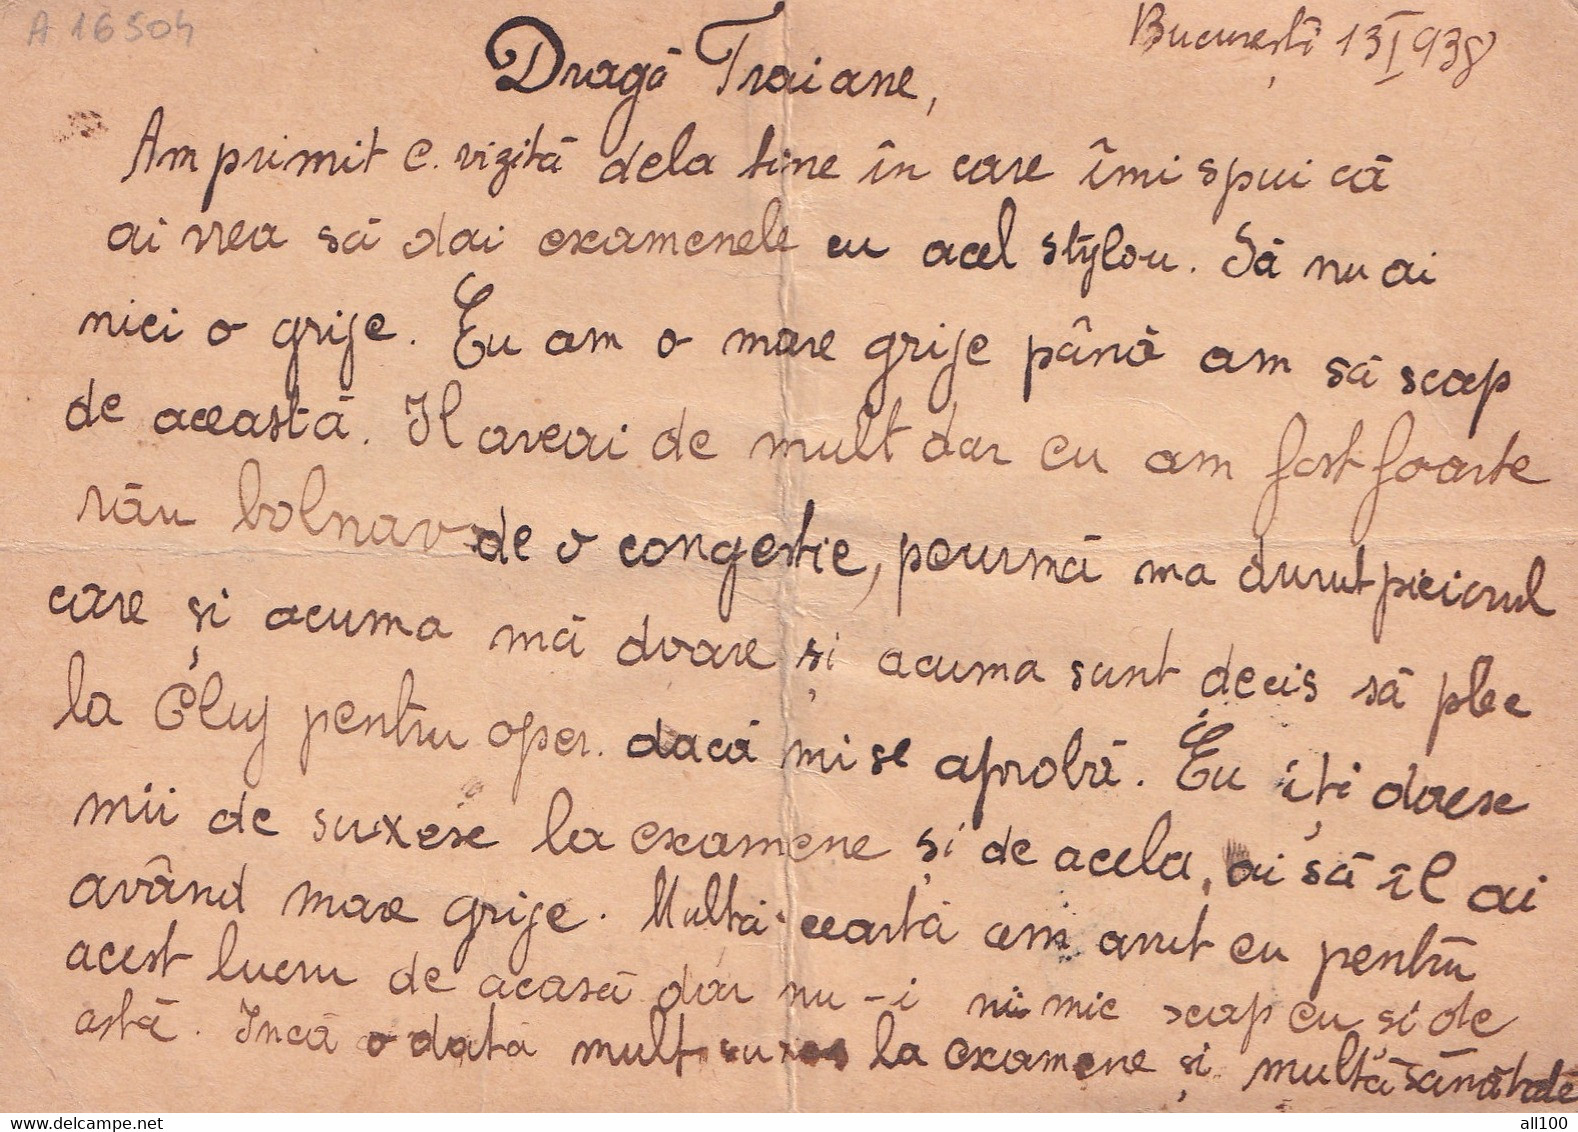 A 16504
București 13 I 938
Dragă Traiane,
Am primit c. vizită dela tine în care îmi spui că
ai vrea să dai examenele cu acel stylou. Să nu ai
nici o grije. Eu am o mare grije până am să scap
de această. Il aveai de mult dar eu am fost foarte
rău bolnav de o congestie, peurmă ma durut piciorul
care și acuma mă doare și acuma sunt decis să plec
la Cluj pentru oper. dacă mi se aprobă. Eu îți doresc
mii de suxese la examene și de acela, ai să îl ai
având mare grije. Multă ceartă am avut eu pentru
acest lucru de acasă dar nu-i nimic scap eu și de
astă. Incă o dată mult suxes la examene și multă sănătate
www.delcampe.net
all100